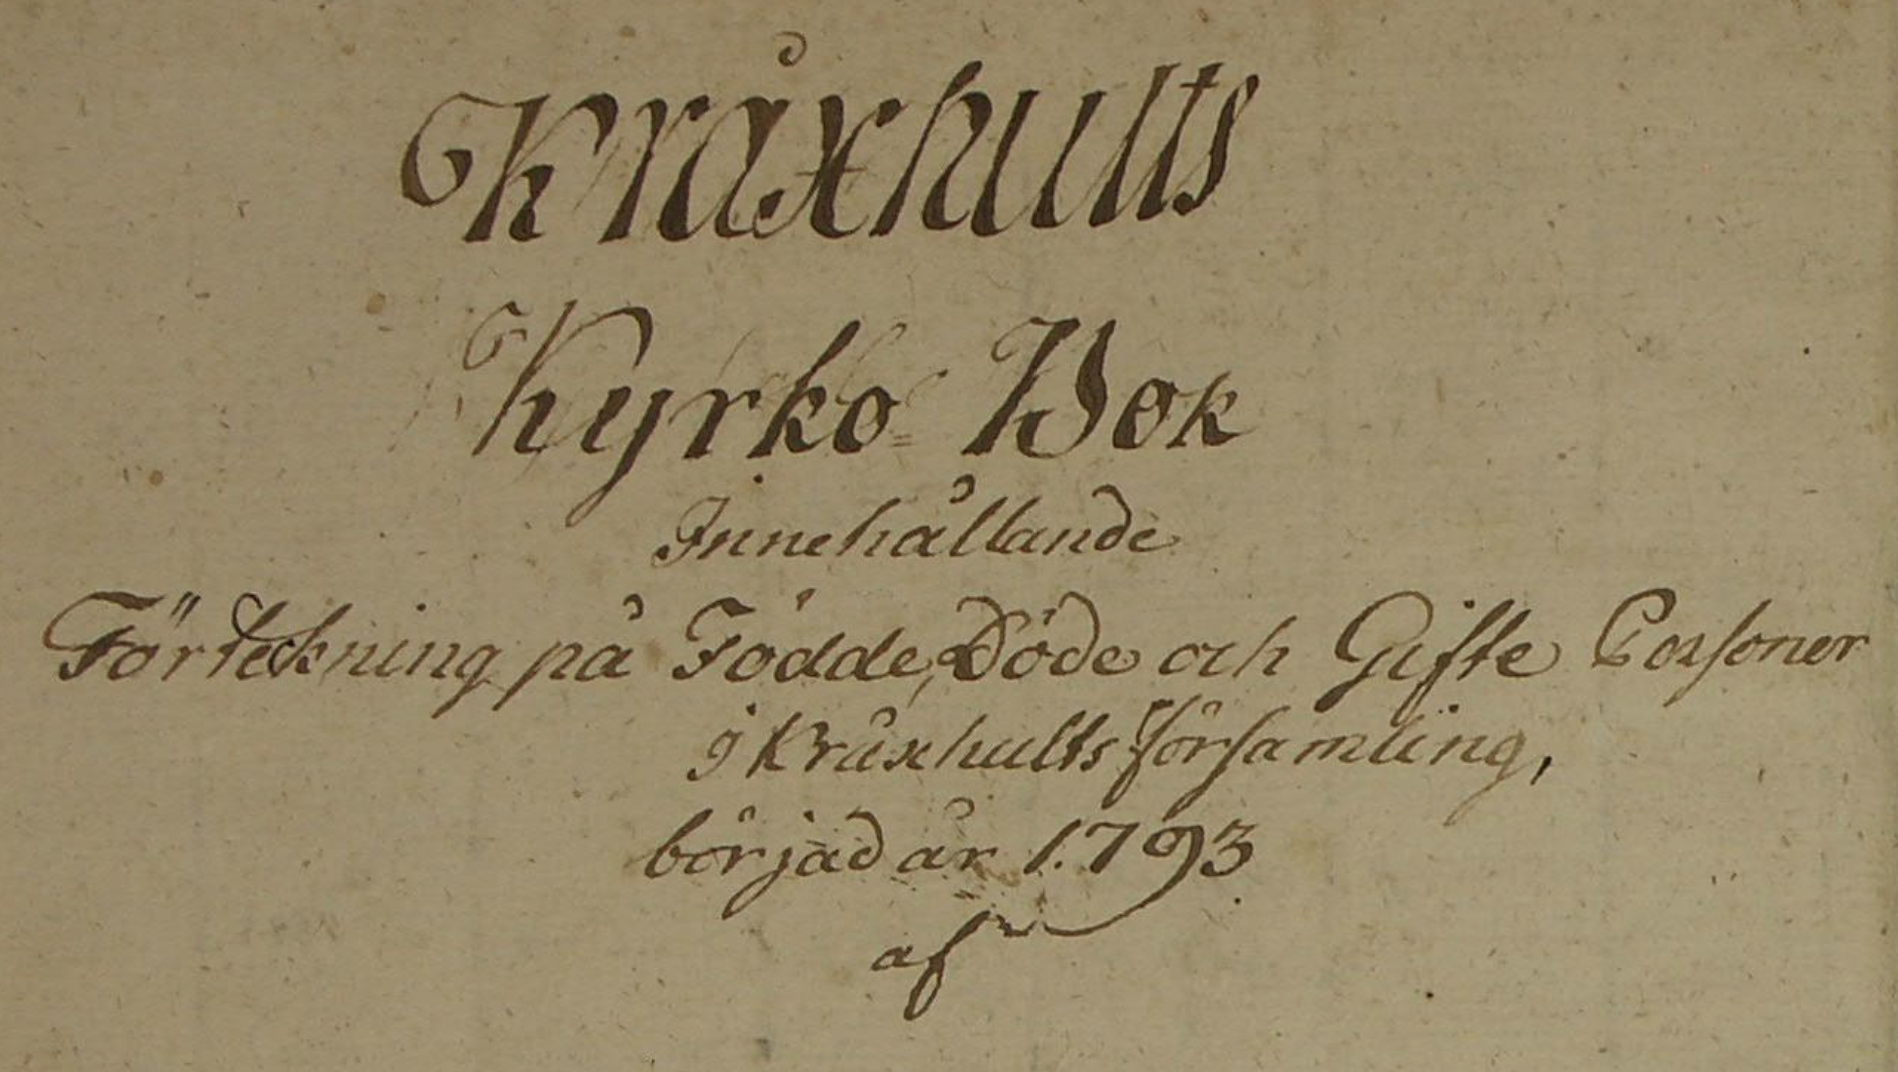 Kråxhults
Kyrko=Bok
Innehållande
Förteckning på Födde, Döde och Gifte Personer
i Kråxhults församling,
börjad år 1793
af